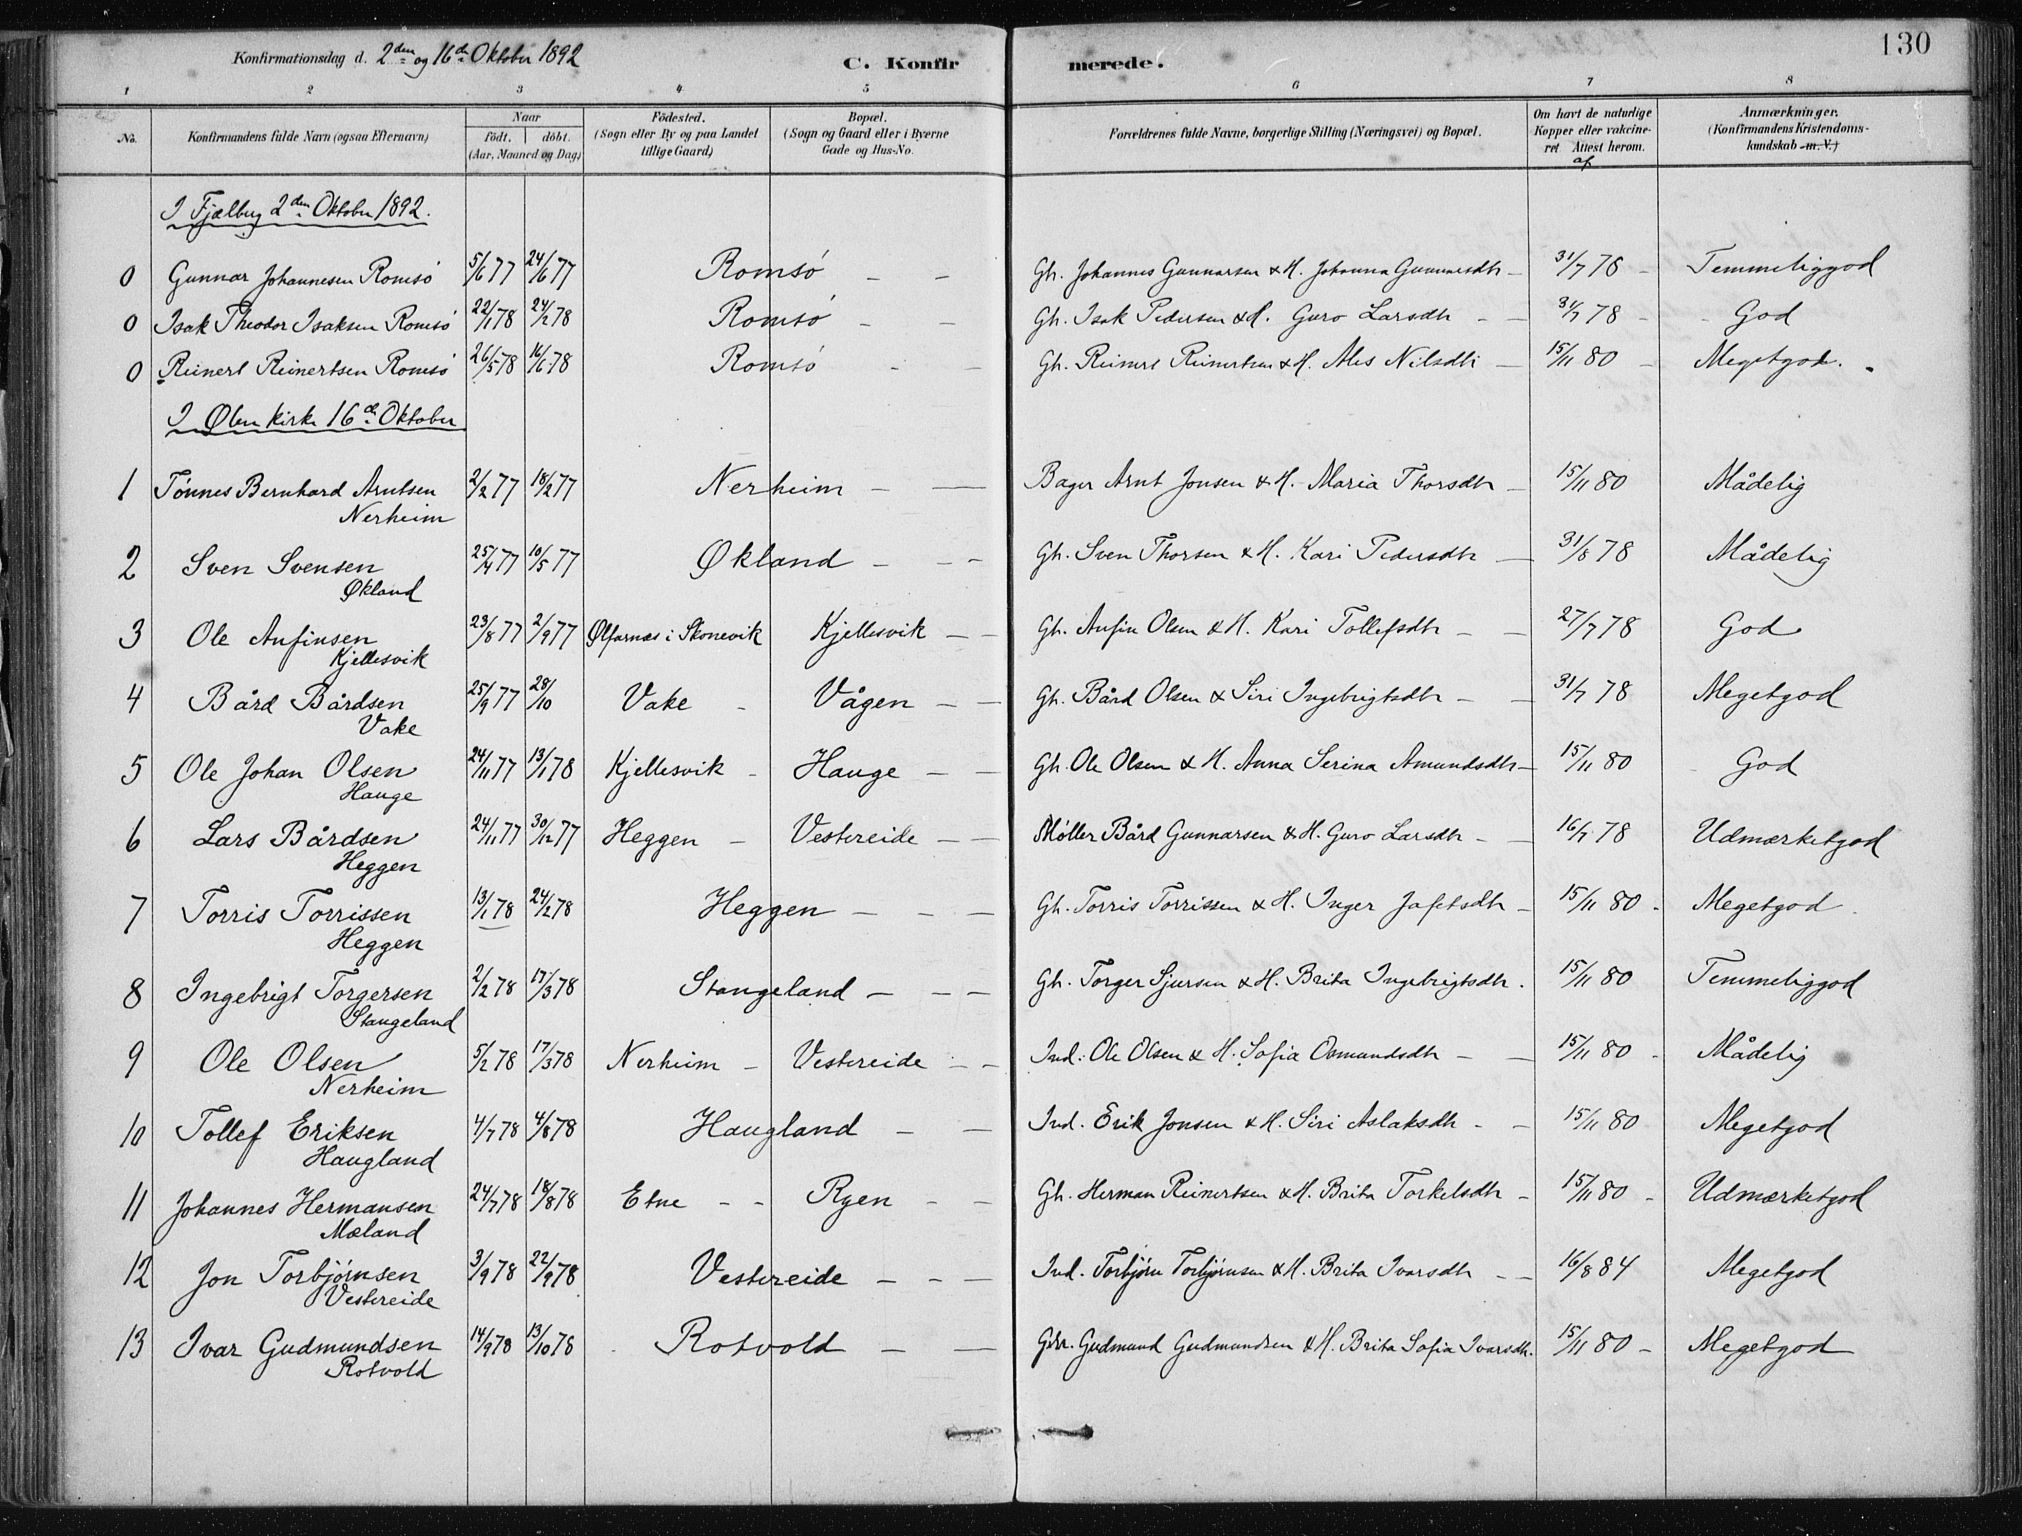 Konfirmationsdag d. 2den og 16de Oktober 1892
C. Konfirmerede.
130
1 2 3 4 5 6 7 8
No. Konfirmandens fulde Navn (ogsaa Efternavn) Naar födt. döbt. (Aar, Maaned og Dag) Födested. (Sogn eller By og paa Landet tillige Gaard) Bopæl. (Sogn og Gaard eller i Byerne Gade og Hus-No. Forældrenes fulde Navne, borgerlige Stilling (Næringsvei) og Bopæl. Om havt de naturlige Kopper eller vakcineret af Attest herom. Anmærkninger. (Konfirmandens Kristendomskundskab m.V.)
I Fjælberg 2den Oktober 1892.
0 Gunnar Johannesen Romsö 5/6 77 24/6 77 Romsö – – Gb. Johannes Gunnarsen & H. Johanna Gunnarsdtr – 31/7 78 – Temmeliggod
0 Isak Theodor Isaksen Romsö 22/1 78 24/2 78 Romsö – – Gb. Isak Pedersen & H. Guro Larsdtr – – 31/7 78 – God
0 Reinert Reinertsen Romsö 26/5 78 16/6 78 Romsö – – Gb. Reinert Reinertsen & H. Ales Nilsdtr – 15/11 80 – Megetgod.
I Ølen kirke 16de Oktober
1 Tönnes Bernhard Arntsen 2/2 77 18/2 77 Nerheim – – Bager Arnt Jonsen & H. Maria Thorsdtr – 15/11 80 Mådelig
Nerheim
2 Sven Svensen 25/4 77 10/5 77 Økland – – – Gb. Sven Thorsen & H. Kari Pedersdtr – 31/8 78 Mådelig
Økland
3 Ole Anfinsen 23/8 77 2/9 77 Ølfarnæs i Skonevik Kjellesvik – – Gb. Anfin Olsen & H. Kari Tollefsdtr – – 27/7 78 God
Kjellesvik
4 Bård Bårdsen 25/9 77 28/10 Vake – Vågen – – Gb. Bård Olsen & Siri Ingebrigtsdtr – – 31/7 78 Megetgod
Vake
5 Ole Johan Olsen 24/11 77 13/1 78 Kjellesvik – Hauge – – Gb. Ole Olsen & H. Anna Serina Amundsdtr – 15/11 80 – God
Hauge
6 Lars Bårdsen 24/11 77 30/12 77 Heggen – Vestereide – – Møller Bård Gunnarsen & H. Guro Larsdtr – – 16/7 78 Udmærketgod
Heggen
7 Torris Torrissen 13/1 78 24/2 78 Heggen – – – Gb. Torris Torrissen & H. Inger Jafetsdtr – 15/11 80 – Megetgod
Heggen
8 Ingebrigt Torgersen 2/2 78 17/3 78 Stangeland – – – Gb. Torger Sjursen & H. Brita Ingebrigtsdtr. 15/11 80 Temmeliggod
Stangeland
9 Ole Olsen 5/2 78 17/3 78 Nerheim – Vestereide – – Ind: Ole Olsen & H. Sofia Osmundsdtr – – 15/11 80 – Mådelig
Nerheim
10 Tollef Eriksen 4/7 78 4/8 78 Haugland – – Ind. Erik Jonsen & H. Siri Aslaksdtr – – 15/11 80 Megetgod
Haugland
11 Johannes Hermansen 24/7 78 18/8 78 Etne – – Ryen – – Gb. Herman Reinertsen & H. Brita Torkelsdtr – 15/11 80 – Udmærketgod
Mæland
12 Jon Torbjørnsen 3/9 78 22/9 78 Vestereide – – – Ind. Torbjørn Torbjørnsen & H. Brita Ivarsdtr – – 16/8 84 Megetgod
Vestereide
13 Ivar Gudmundsen 14/9 78 13/10 78 Rotvold – – Gudmund Gudmundsen & H. Brita Sofia Ivarsdtr. 15/11 80 – Megetgod
Rotvold